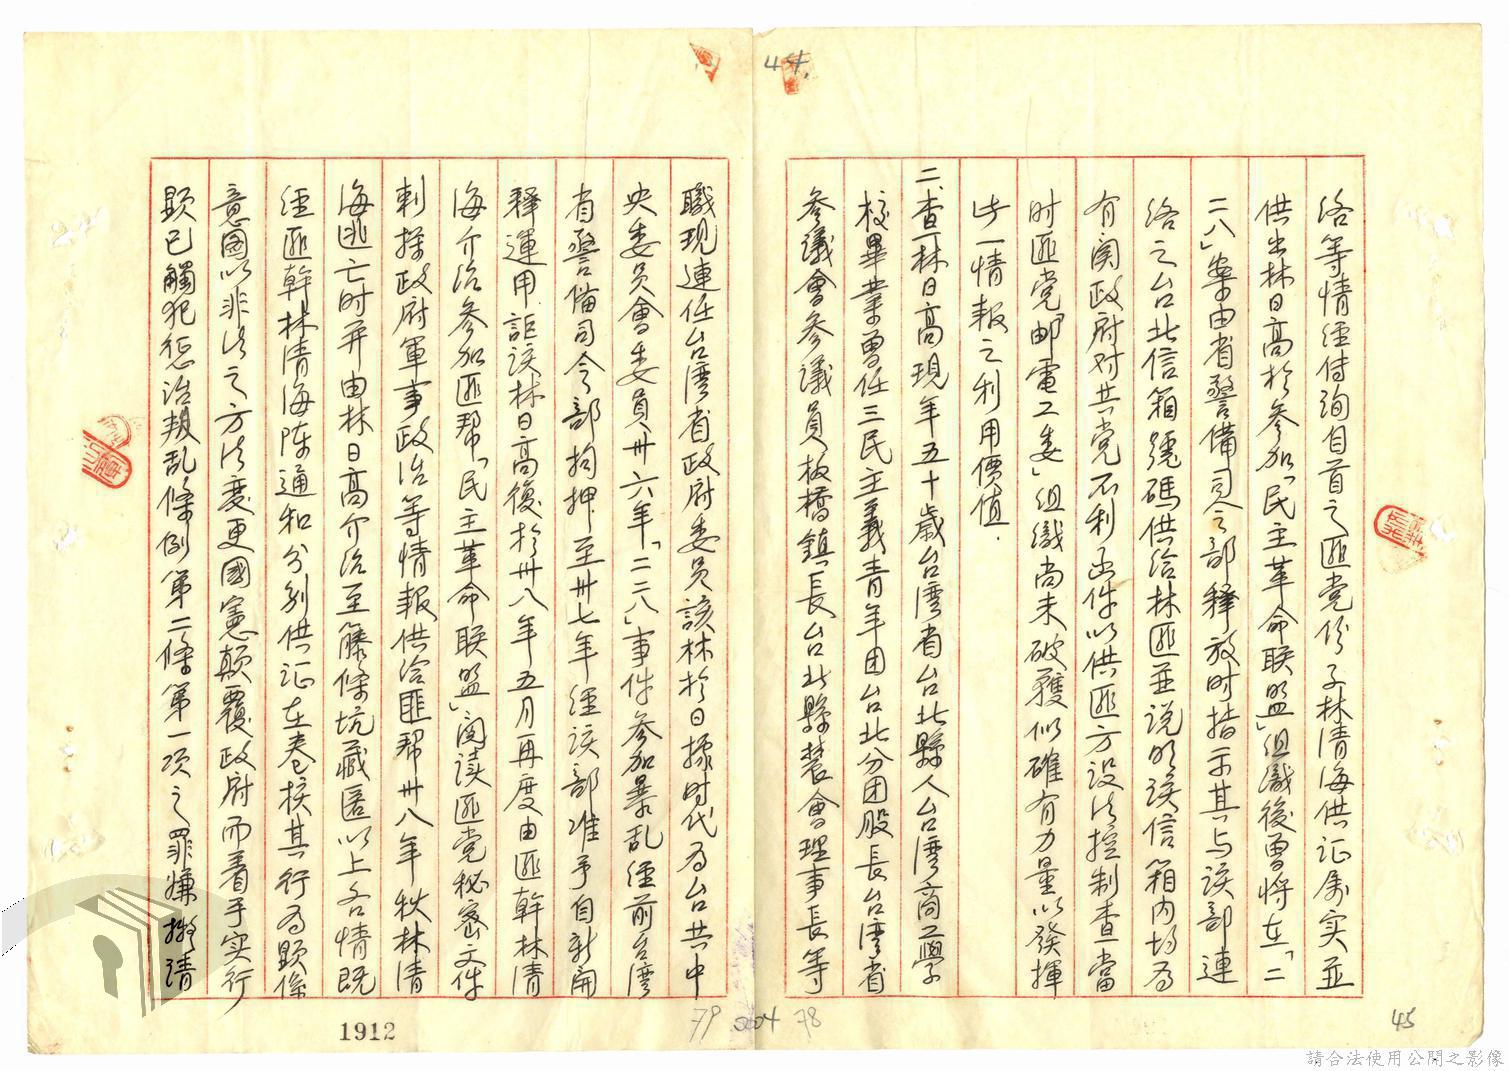 44.
洛等情經傳詢自首之匪党份子林清海供証屬实並
供出林日高於參加「民主革命联盟」组織後曾将在「二
二八」案由省警備司令部釋放时指示其与該部連
洛之台北信箱號碼供给林匪並说明該信箱内均為
有関政府对共党不利函件以供匪方设法控制查當
时匪党「邮電工委」组織尚未破獲似確有力量以發揮
此一情報之利用價值.
二、查林日高現年五十歲台湾省台北縣人台湾商工學
校畢業曾任三民主義青年团台北分团股長台湾省
參議會參議員板橋鎮長台北縣農會理事長等
職現連任台湾省政府委员該林於日據时代為台共中
央委员會委員、卅六年「二二八」事件參加暴乱經前台湾
省警備司令部拘押至卅七年經該部准予自新開
释運用詎該林日高復於卅八年五月再度由匪幹林清
海介紹參加匪帮「民主革命联盟」阅读匪党秘密文件
刺探政府軍事政治等情報供给匪帮卅八年秋林清
海匪亡时并由林日高介绍至籐條坑藏匿以上各情既
經匪幹林清海陈通和分别供证在卷核其行為顯係
意圖以非法之方法变更國憲颠覆政府而着手实行
顯已觸犯惩治叛乱條例第二條第一項之罪嫌擬請
1912
79 0004 78
45
請合法使用公開之影像